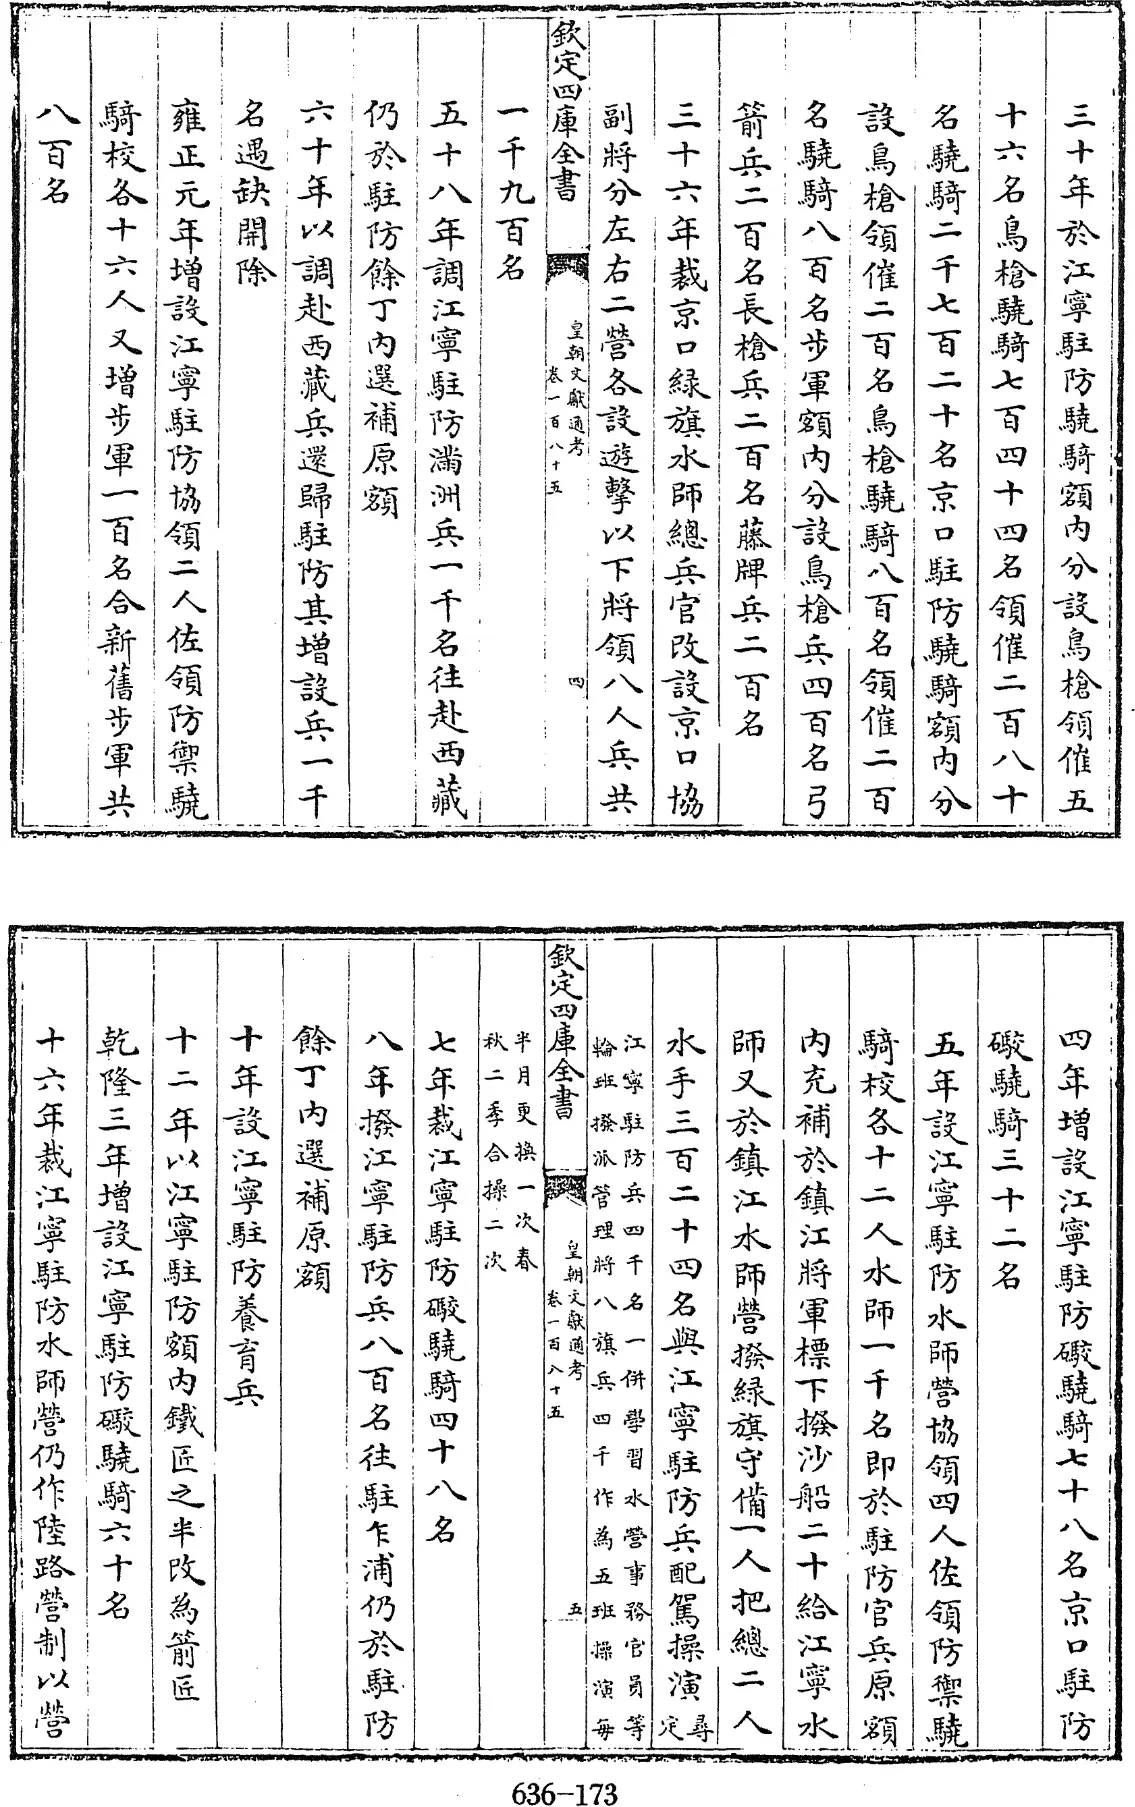 三十年於江寧駐防驍騎額内分設鳥槍領催五
十六名鳥槍驍騎七百四十四名領催二百八十
名驍騎二千七百二十名京口駐防驍騎額内分
設鳥槍領催二百名鳥槍驍騎八百名領催二百
名驍騎八百名步軍額内分設鳥槍兵四百名弓
箭兵二百名長槍兵二百名藤牌兵二百名
三十六年裁京口綠旗水師總兵官改設京口協
副將分左右二營各設遊擊以下將領八人兵共
欽定四庫全書
皇朝文獻通考
卷一百八十五
四
一千九百名
五十八年調江寧駐防滿洲兵一千名往赴西藏
仍於駐防餘丁内選補原額
六十年以調赴西藏兵還歸駐防其增設兵一千
名遇缺開除
雍正元年增設江寧駐防協領二人佐領防禦驍
騎校各十六人又增步軍一百名合新舊步軍共
八百名
四年增設江寧駐防礮驍騎七十八名京口駐防
礮驍騎三十二名
五年設江寧駐防水師營協領四人佐領防禦驍
騎校各十二人水師一千名即於駐防官兵原額
内充補於鎮江將軍標下撥沙船二十給江寧水
師又於鎮江水師營撥綠旗守備一人把總二人
水手三百二十四名與江寧駐防兵配駕操演尋
定
江寧駐防兵四千名一併學習水營事務官員等
輪班撥派管理將八旗兵四千作為五班操演每
欽定四庫全書
皇朝文獻通考
卷一百八十五
五
半月更換一次春
秋二季合操二次
七年裁江寧駐防礮驍騎四十八名
八年撥江寧駐防兵八百名往駐乍浦仍於駐防
餘丁内選補原額
十年設江寧駐防養育兵
十二年以江寧駐防額内鐵匠之半改為箭匠
乾隆三年增設江寧駐防礮驍騎六十名
十六年裁江寧駐防水師營仍作陸路營制以營
636-173